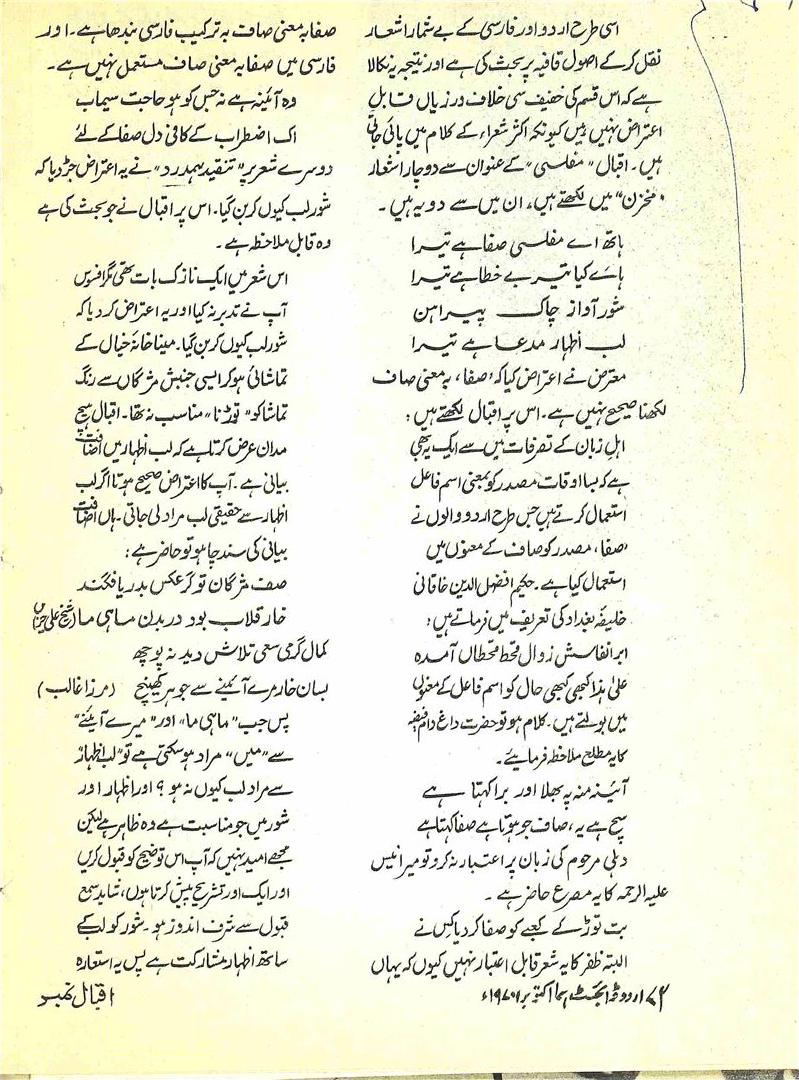 اسی طرح اردو اور فارسی کے بے شمار اشعار
نقل کرکے اصول قافیہ پر بحث کی ہے اور نتیجہ یہ نکالا
ہے کہ اس قسم کی خفیف سی خلاف ورزیاں قابلِ
اعتراض نہیں ہیں کیونکہ اکثر شعراء کے کلام میں پائی جاتی
ہیں۔ اقبال "مفلسی" کے عنوان سے دو چار اشعار
"مخزن" میں لکھتے ہیں، ان میں سے دو یہ ہیں۔
ہاتھ اے مفلسی صفا ہے تیرا
ہائے کیا تیر بے خطا ہے تیرا
شور آواز چاک پیراہن
لب اظہار مدعا ہے تیرا
معترض نے اعتراض کیا کہ 'صفا، بہ معنی صاف
لکھنا صحیح نہیں ہے۔ اس پر اقبال لکھتے ہیں:
اہلِ زبان کے تصرفات میں سے ایک یہ بھی
ہے کہ بسا اوقات مصدر کو بمعنی اسم فاعل
استعمال کرتے ہیں جس طرح اردو والوں نے
'صفا، مصدر کو صاف کے معنوں میں
استعمال کیا ہے۔ حکیم افضل الدین خاقانی
خلیفۂ بغداد کی تعریف میں فرماتے ہیں:
ابر انفاسش زوال قحط قحطاں آمدہ
علیٰ ہذا کبھی کبھی حال کو اسم فاعل کے معنوں
میں بولتے ہیں۔ کلام ہو تو حضرت داغ دام فیضہ
کا یہ مطلع ملاحظہ فرمائیے۔
آئینہ منہ پہ بھلا اور برا کہتا ہے
سچ ہے یہ، صاف جو ہوتا ہے صفا کہتا ہے
دہلی مرحوم کی زبان پر اعتبار نہ کرو تو میر انیس
علیہ الرحمہ کا یہ مصرع حاضر ہے۔
بت توڑ کے کعبے کو صفا کر دیا کس نے
البتہ ظفر کا یہ شعر قابل اعتبار نہیں کیوں کہ یہاں
صفا بہ معنی صاف بہ ترکیب فارسی بندھا ہے۔ اور
فارسی میں صفا بہ معنی صاف مستعمل نہیں ہے۔
وہ آئینہ ہے نہ جس کو ہو حاجت سیماب
اک اضطراب کے کافی دل صفا کے لئے
دوسرے شعر پر "تنقید ہمدرد" نے یہ اعتراض جڑ دیا کہ
شور لب کیوں کر بن گیا۔ اس پر اقبال نے جو بحث کی ہے
وہ قابل ملاحظہ ہے۔
اس شعر میں ایک نازک بات تھی مگر افسوس
آپ نے تدبر نہ کیا اور یہ اعتراض کر دیا کہ
شور لب کیوں کر بن گیا۔ مینا خانۂ خیال کے
تماشائی ہو کر ایسی جنبش مژگاں سے رنگ
تماشا کو "توڑنا" مناسب نہ تھا۔ اقبال ہیچ
مداں عرض کرتا ہے کہ لب اظہار میں اضافت
بیانی ہے۔ آپ کا اعتراض صحیح ہوتا اگر لب
اظہار سے حقیقی لب مراد لی جاتی۔ ہاں اضافت
بیانی کی سند چاہو تو حاضر ہے:
صف مژگان تو گر عکس بدریا فگند
خار قلاب بود در بدن ماہی ما (شیخ علی حزیں)
کمال گرمی سعی تلاش دید نہ پوچھ
بسان خار مرے آئینے سے جوہر کھینچ (مرزا غالب)
پس جب "ماہی ما" اور "میرے آئینے"
سے "میں" مراد ہو سکتی ہے تو "لب اظہار"
سے مراد لب کیوں نہ ہو؟ اور اظہار اور
شور میں جو مناسبت ہے وہ ظاہر ہے لیکن
مجھے امید نہیں کہ آپ اس توضیح کو قبول کریں
اور ایک اور تشریح پیش کرتا ہوں، شاید سمع
قبول سے شرف اندوز ہو۔ شور کو لب کے
ساتھ اظہار مشارکت ہے پس یہ استعارہ
۷۲ اردو ڈائجسٹ ہما اکتوبر ۱۹۷۶ء
اقبال نمبر